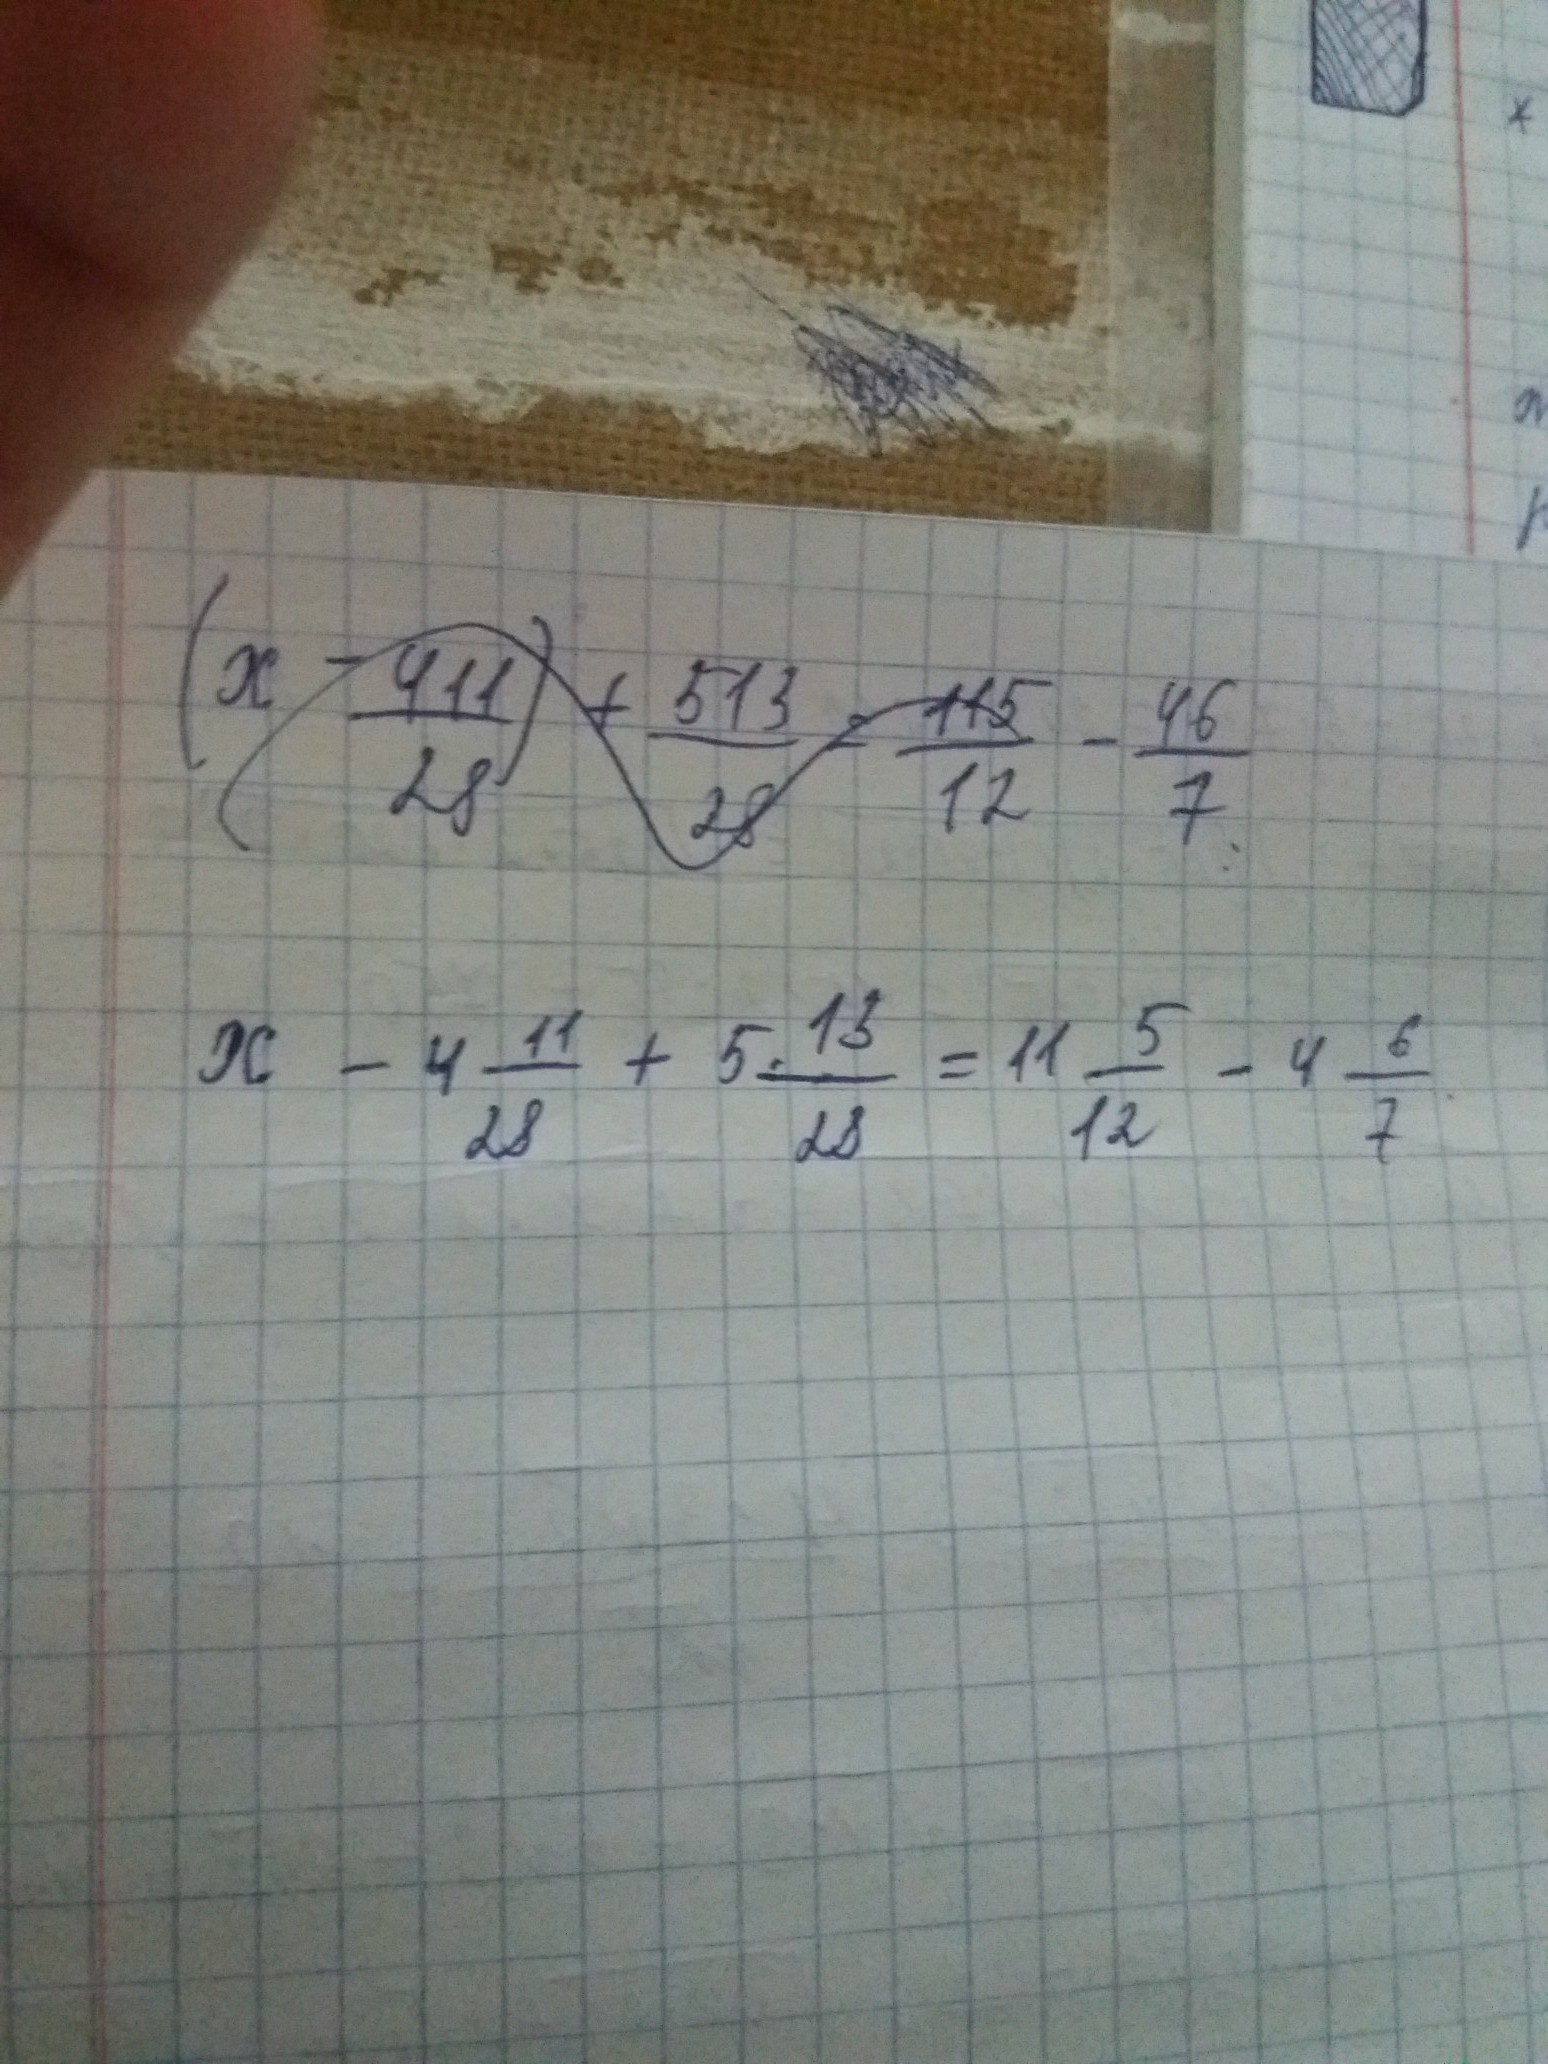 x
(x - 411/28) + 513/28 = 115/12 - 46/7
x - 4 11/28 + 5 13/28 = 11 5/12 - 4 6/7